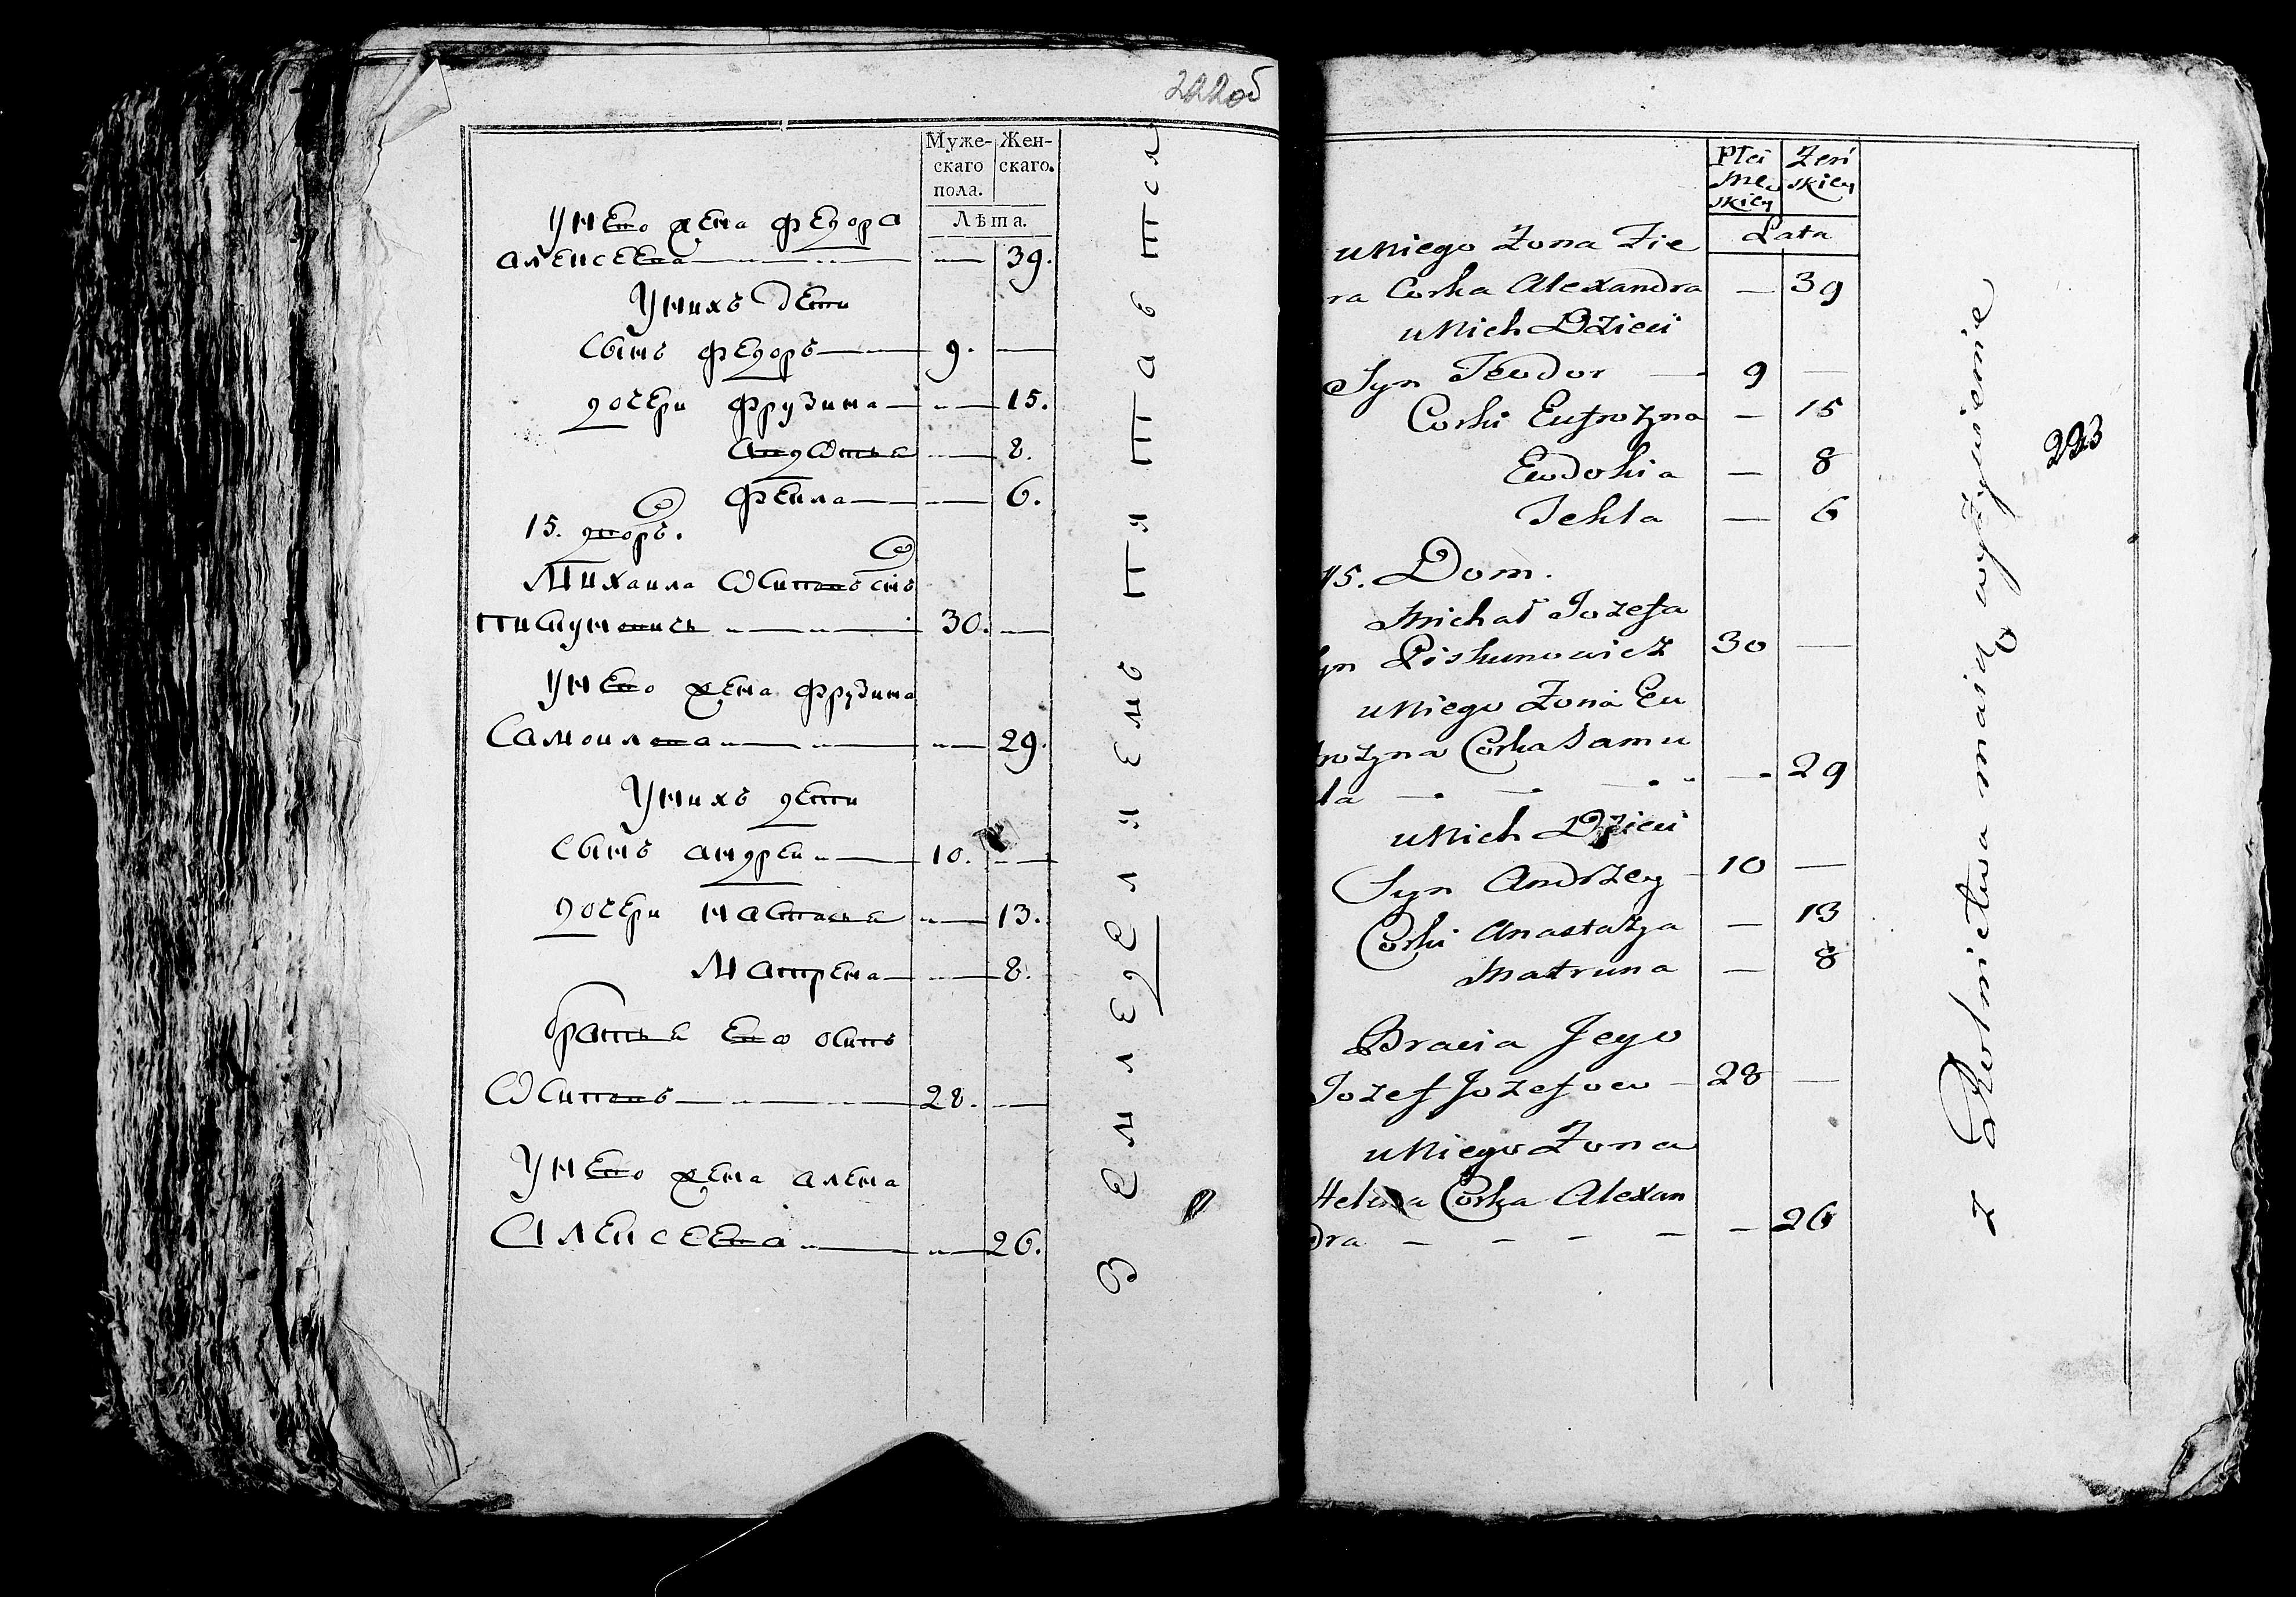 222об
Муже- Жен-
скаго скаго.
пола.
Лѣта.
У него жена Федора
алексеева 39.
У нихъ дети
сынъ федоръ 9.
дочери фрузина 15.
авдотья 8.
фекла 6.
15. дворъ.
Михаила Осиповъ снъ
пискуновичь 30.
У него жена фрузина
Самоилова 29.
У нихъ дети
сынъ андреи 10.
дочери настасья 13.
Матрена 8.
братья его осипъ
Осиповъ 28.
У него жена алена
Алексеева 26.
Земледелиемъ питаются
Płci Żeń
Mę skiey
skiey
Lata
u Niego Żona Fie
ra Corka Alexandra — 39
u Nich Dzieci
Syn Teodor — 9 —
Corki Eufrozyna — 15
Eudokia — 8
Tekla — 6
15. Dom.
Michał Jozefa
yn Piskunowicz 30 —
u Niego Żona Eu
rozyna Corka Samu
la — — — — 29
u Nich Dzieci
Syn Andrzey 10 —
Corki Anastazya — 13
Matruna — 8
Bracia Jego
Jozef Jozefow 28 —
u Niego Żona
Helena Corka Alexan
dra — — — — — 26
z Rolnictwa maią wyżywienie
223